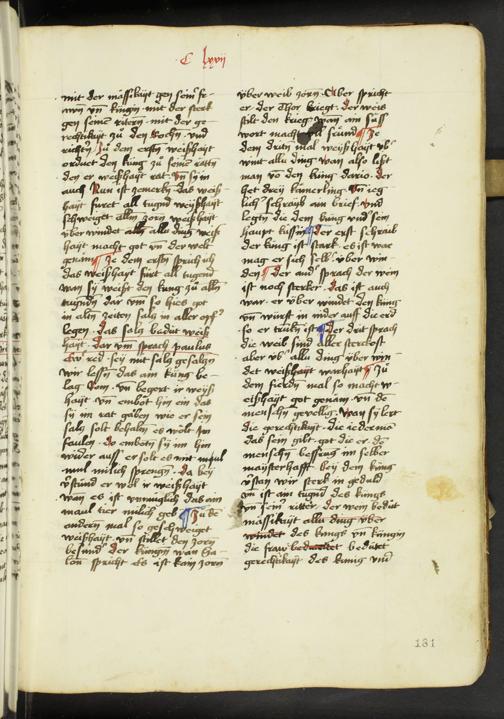 C lxvij
mit der mässikayt gen seinē fr=
awn vn̄ kingin · mit der sterk
gen seinē rittern · mit der ge=
rechtikayt zu den bochn · vnd
richtern Zu dem ersten weißhayt
ordnet den kung zu seinē ratn
den er weißhayt rat · vn̄ sy in
auch Nun ist zemerkn das weiß=
hayt furet all tugend weyßhayt
schweiget allen zorn weißhayt
vberwindet alln allu ding weiß
hayt macht got vn̄ der welt
genam Ze dem ersten sprich ich
das weißhayt furt all tugend
wan sy weißt den kung zu alln
tugndn dar vm so hies got
in alln zeiten salz in aller opf°
legen · das salz bedut weiß
hayt · dar vm sprach paulus
Ew red · sey mit salz gesalzn
wir lesen das am kung be=
lag Rom · vn̄ begert ir weyß
hayt vn̄ embot hin ein das
sy im rat gäben wie er sein
salz solt behaltn es wolt im
faulen · do embotn sy im hin
wider auß · er solt es mit maul
mul milich sprengn · da bey
vstund er wol ir weißhayt
wan es ist vnmuglich das ain
maul tier milich geb Zu de
andern mal so geschweiget
weißhayt vn̄ stillet den zorn
besund° der kungen wan Sa=
lon spricht Es ist kain zorn
vber weib zorn · Aber spricht
er der Thor kriegt · der weis
stilt den krieg wan ain suss
wort macht vil freund Ze
dem dritn mal weißhayt vb°
wint allu ding · wan also list
man vo den kung dario · der
het drey kamerling · Vn̄ ieg
lich° schrayb ain brief vnd
legtn die dem kung vnd sein
haupt kissin der erst schraib
der kung ist stark · es ist war
mag er sich selb° vber win=
den der and° sprach der wein
ist noch sterker · das ist auch
war · er vber windet den kung
vn̄ wurft in nider auf die erd
so er trukn ist der drit sprach
die weib sind aller sterckost
aber vb° allu ding vber win
det weißhayt warhayt Zu
dem fierdn mal so macht w=
eißhayt got genam · vn̄ de
menschn gevellig · wan sy lert
die gerechtikayt · die iederma
das sein gibt · got die er · de
menschn besseng im selber
maysterschafft bey dem kung
vstan wir sterk in geduld
vn̄ ist ain tugnd des kungs
vn̄ sein° ritter · der wein bedut
massikayt allu ding vber
windet des kungs vn̄ kungin
die fraw bedeutet bedutet
gerechtikayt des kunig vnd
181